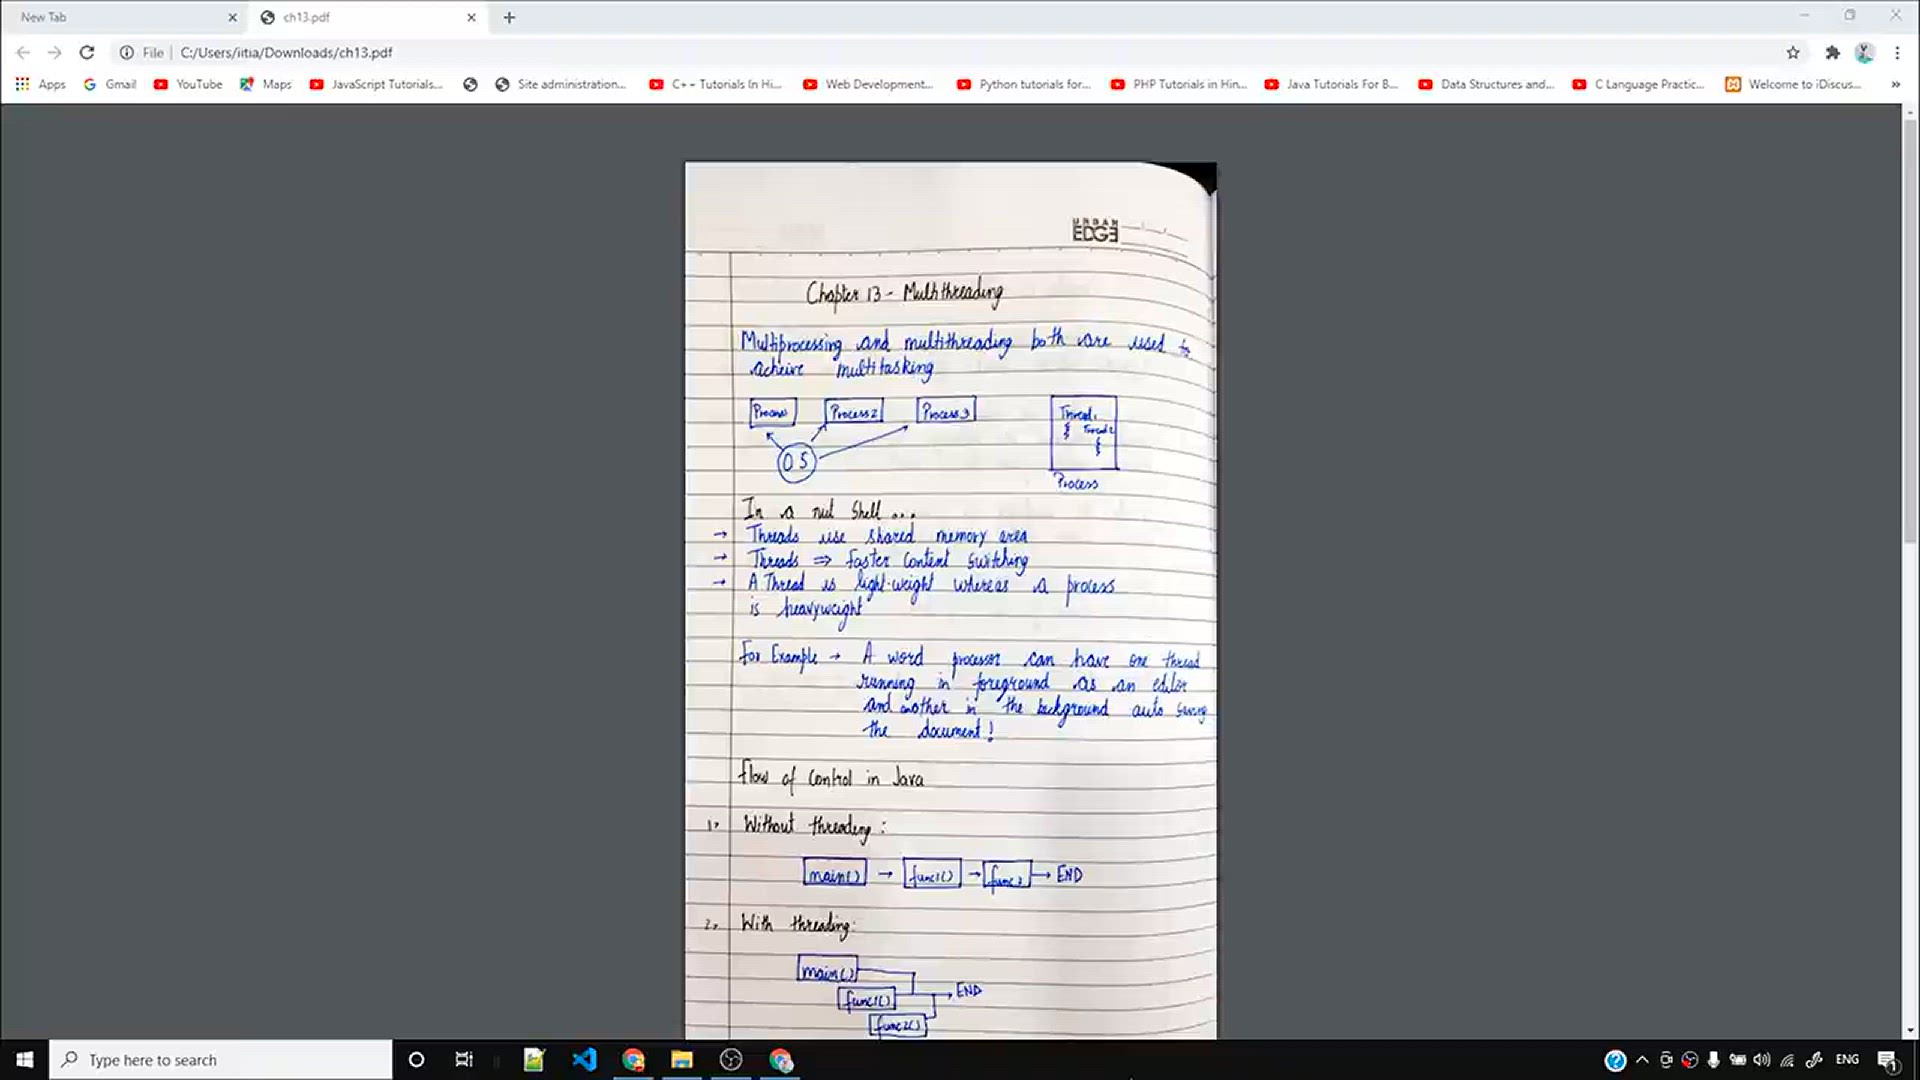 New Tab
ch13.pdf
File | C:/Users/iitia/Downloads/ch13.pdf
Apps
Gmail
YouTube
Maps
JavaScript Tutorials...
Site administration...
C++ Tutorials In Hi...
Web Development...
Python tutorials for...
PHP Tutorials in Hin...
Java Tutorials For B...
Data Structures and...
C Language Practic...
Welcome to iDiscus...
URBAN
EDGE
Chapter 13 - Multithreading
Multiprocessing and multithreading both are used to
acheive multitasking
Process1 Process2 Process3
Thread1
Thread2
OS
Process
In a nut shell...
→ Threads use shared memory area
→ Threads ⇒ faster content switching
→ A Thread is light-weight whereas a process
is heavyweight
For Example → A word processor can have one thread
running in foreground as an editor
and another in the background auto saving
the document!
Flow of control in Java
1. Without threading:
main() → func1() → func2 → END
2. With threading:
main()
func1() → END
func2()
Type here to search
ENG